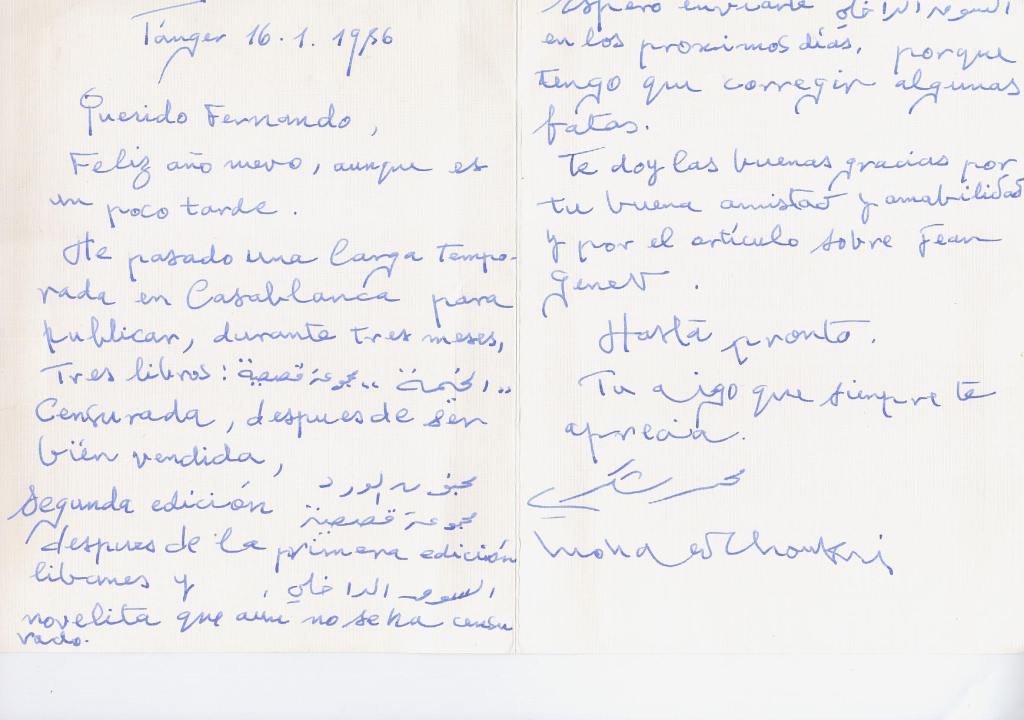 Tánger 16.1.1986
Querido Fernando,
Feliz año nuevo, aunque es
un poco tarde.
He pasado una larga tempo-
rada en Casablanca para
publicar, durante tres meses,
Tres libros: "الخيمة" مجموعة قصصية
Censurada, despues de sen
bien vendida,
Segunda edición مجنون الورد
مجموعة قصصية
despues de la primera edición
libanes y السوق الداخلي
novelita que aún no se ha censu
rado.
Espero enviarte السوق الداخلي
en los proximos días, porque
tengo que corregir algunas
fatas.
Te doy las buenas gracias por
tu buena amistad y amabilidad
y por el artículo sobre Jean
Genet.
Hasta pronto.
Tu aigo que siempre te
aprecia.
محمد شكري
Mohamed Choukri